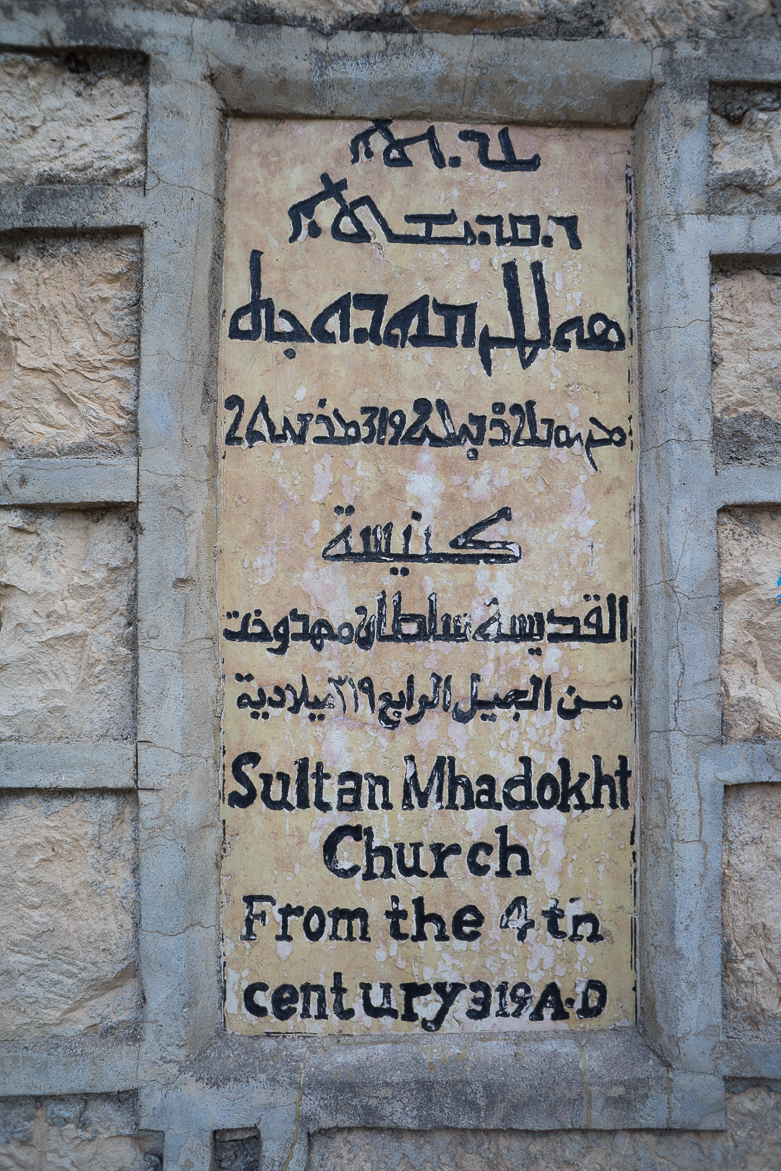 ܥܕܬܐ
ܕܩܕܝܫܬܐ
ܣܘܠܛܢ ܡܗܕܘܟܬ
319
كنيسة
القديسة سلطان مهدوخت
من الجيل الرابع ٣١٩ ميلادية
Sultan Mhadokht
Church
From the 4th
century 319 A.D